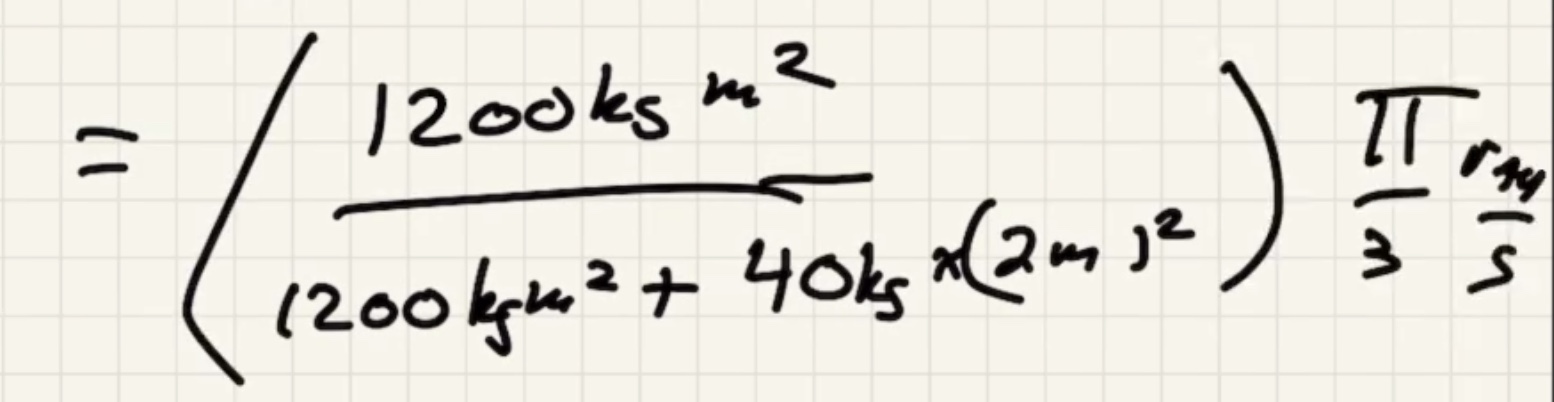 = ( 1200 kg m² / 1200 kgm² + 40kg x(2m)² ) π/3 rad/s